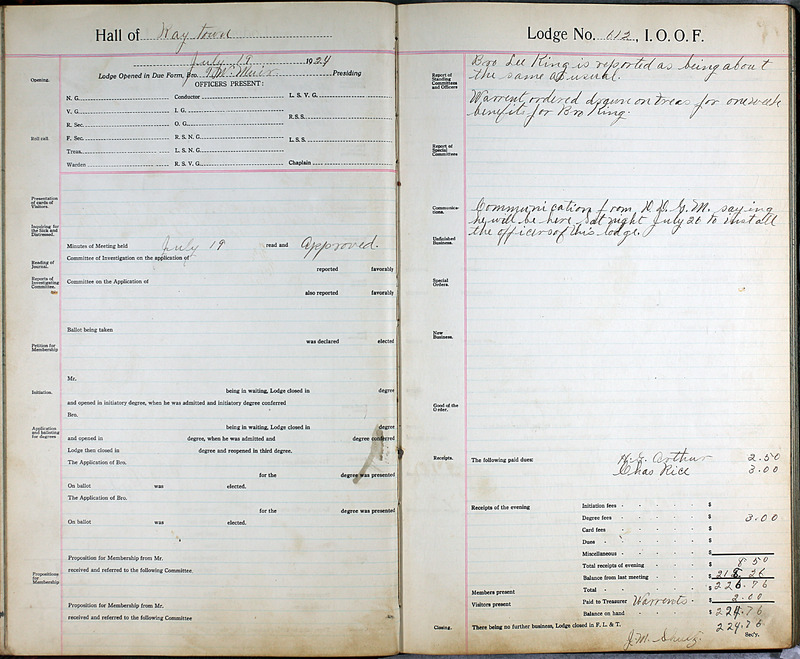 Hall of Raytown
July 19 1924
Lodge Opened in Due Farm, Bro. T. M. Muir Presiding
OFFICERS PRESENT:
Opening.
N. G. Conductor L. S. V. G.
V. G. I. G.
R. S. S.
R. Sec. O. G.
Roll call.
F. Sec. R. S. N. G.
L. S. S.
Treas. L. S. N. G.
Warden R. S. V. G. Chaplain
Presentation of cards of Visitors.
Inquiring for the Sick and Distressed.
Minutes of Meeting held July 19 read and approved.
Reading of Journal.
Committee of Investigation on the application of
reported favorably
Reports of Investigating Committee.
Committee on the Application of
also reported favorably
Ballot being taken
was declared elected
Petition for Membership
Mr.
Initiation.
being in waiting, Lodge closed in degree
and opened in initiatory degree, when he was admitted and initiatory degree conferred
Bro.
Application and balloting for degrees
being in waiting, Lodge closed in degree
and opened in degree, when he was admitted and degree conferred
Lodge then closed in degree and reopened in third degree.
The Application of Bro.
for the degree was presented
On ballot was elected.
The Application of Bro.
for the degree was presented
On ballot was elected.
Proposition for Membership from Mr.
Propositions for Membership
received and referred to the following Committee.
Proposition for Membership from Mr.
received and referred to the following Committee
Lodge No. 112, I. O. O. F.
Report of Standing Committees and Officers
Bro Lee King is reported as being about
the same as usual.
Warrent ordered drawn on Treas for one week
benefits for Bro King.
Report of Special Committees
Communications.
Communication from D. D. G. M. saying
he will be here Sat night July 26 to install
the officers of this lodge.
Unfinished Business.
Special Orders.
New Business.
Good of the Order.
Receipts.
The following paid dues: H. G. Arthur 2.50
Chas Rice 3.00
Receipts of the evening Initiation fees $
Degree fees $ 3.00
Card fees $
Dues $
Miscellaneous $
Total receipts of evening $ 8 50
Balance from last meeting $ 218.26
Members present Total $ 226.76
Visitors present Paid to Treasurer Warrents $ 2.00
Balance on hand $ 224.76
Closing. There being no further business, Lodge closed in F. L. & T. 224.76
J. M. Sec'y.